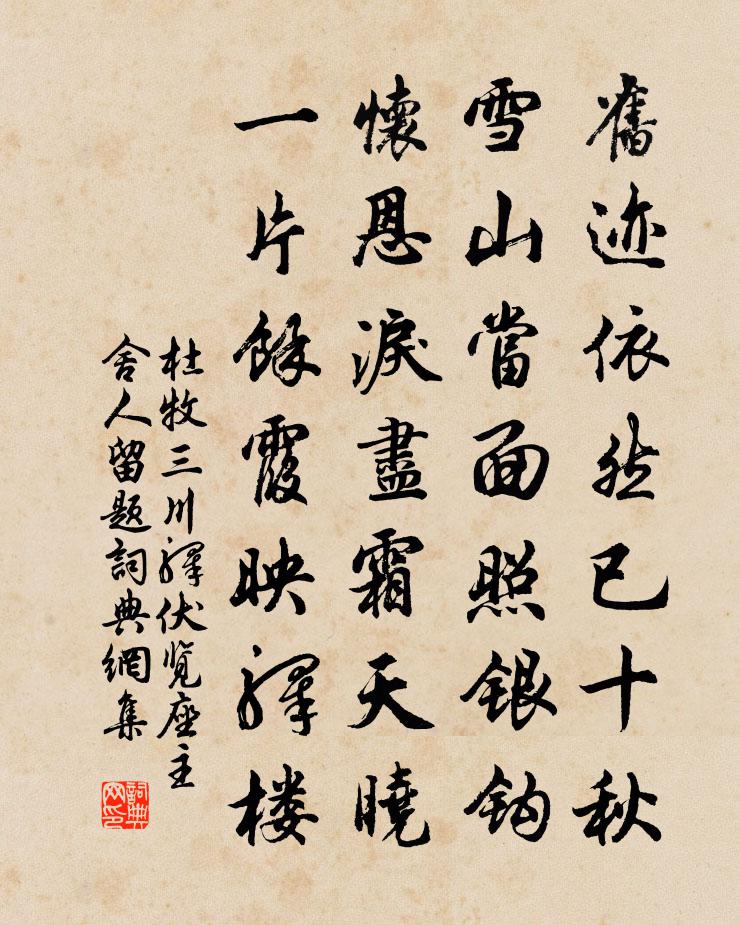 舊迹依然已十秋
雪山當面照銀鈎
懷恩淚盡霜天曉
一片餘霞映驛楼
杜牧三川驛伏览座主
舍人留题詞典網集
詞典网印